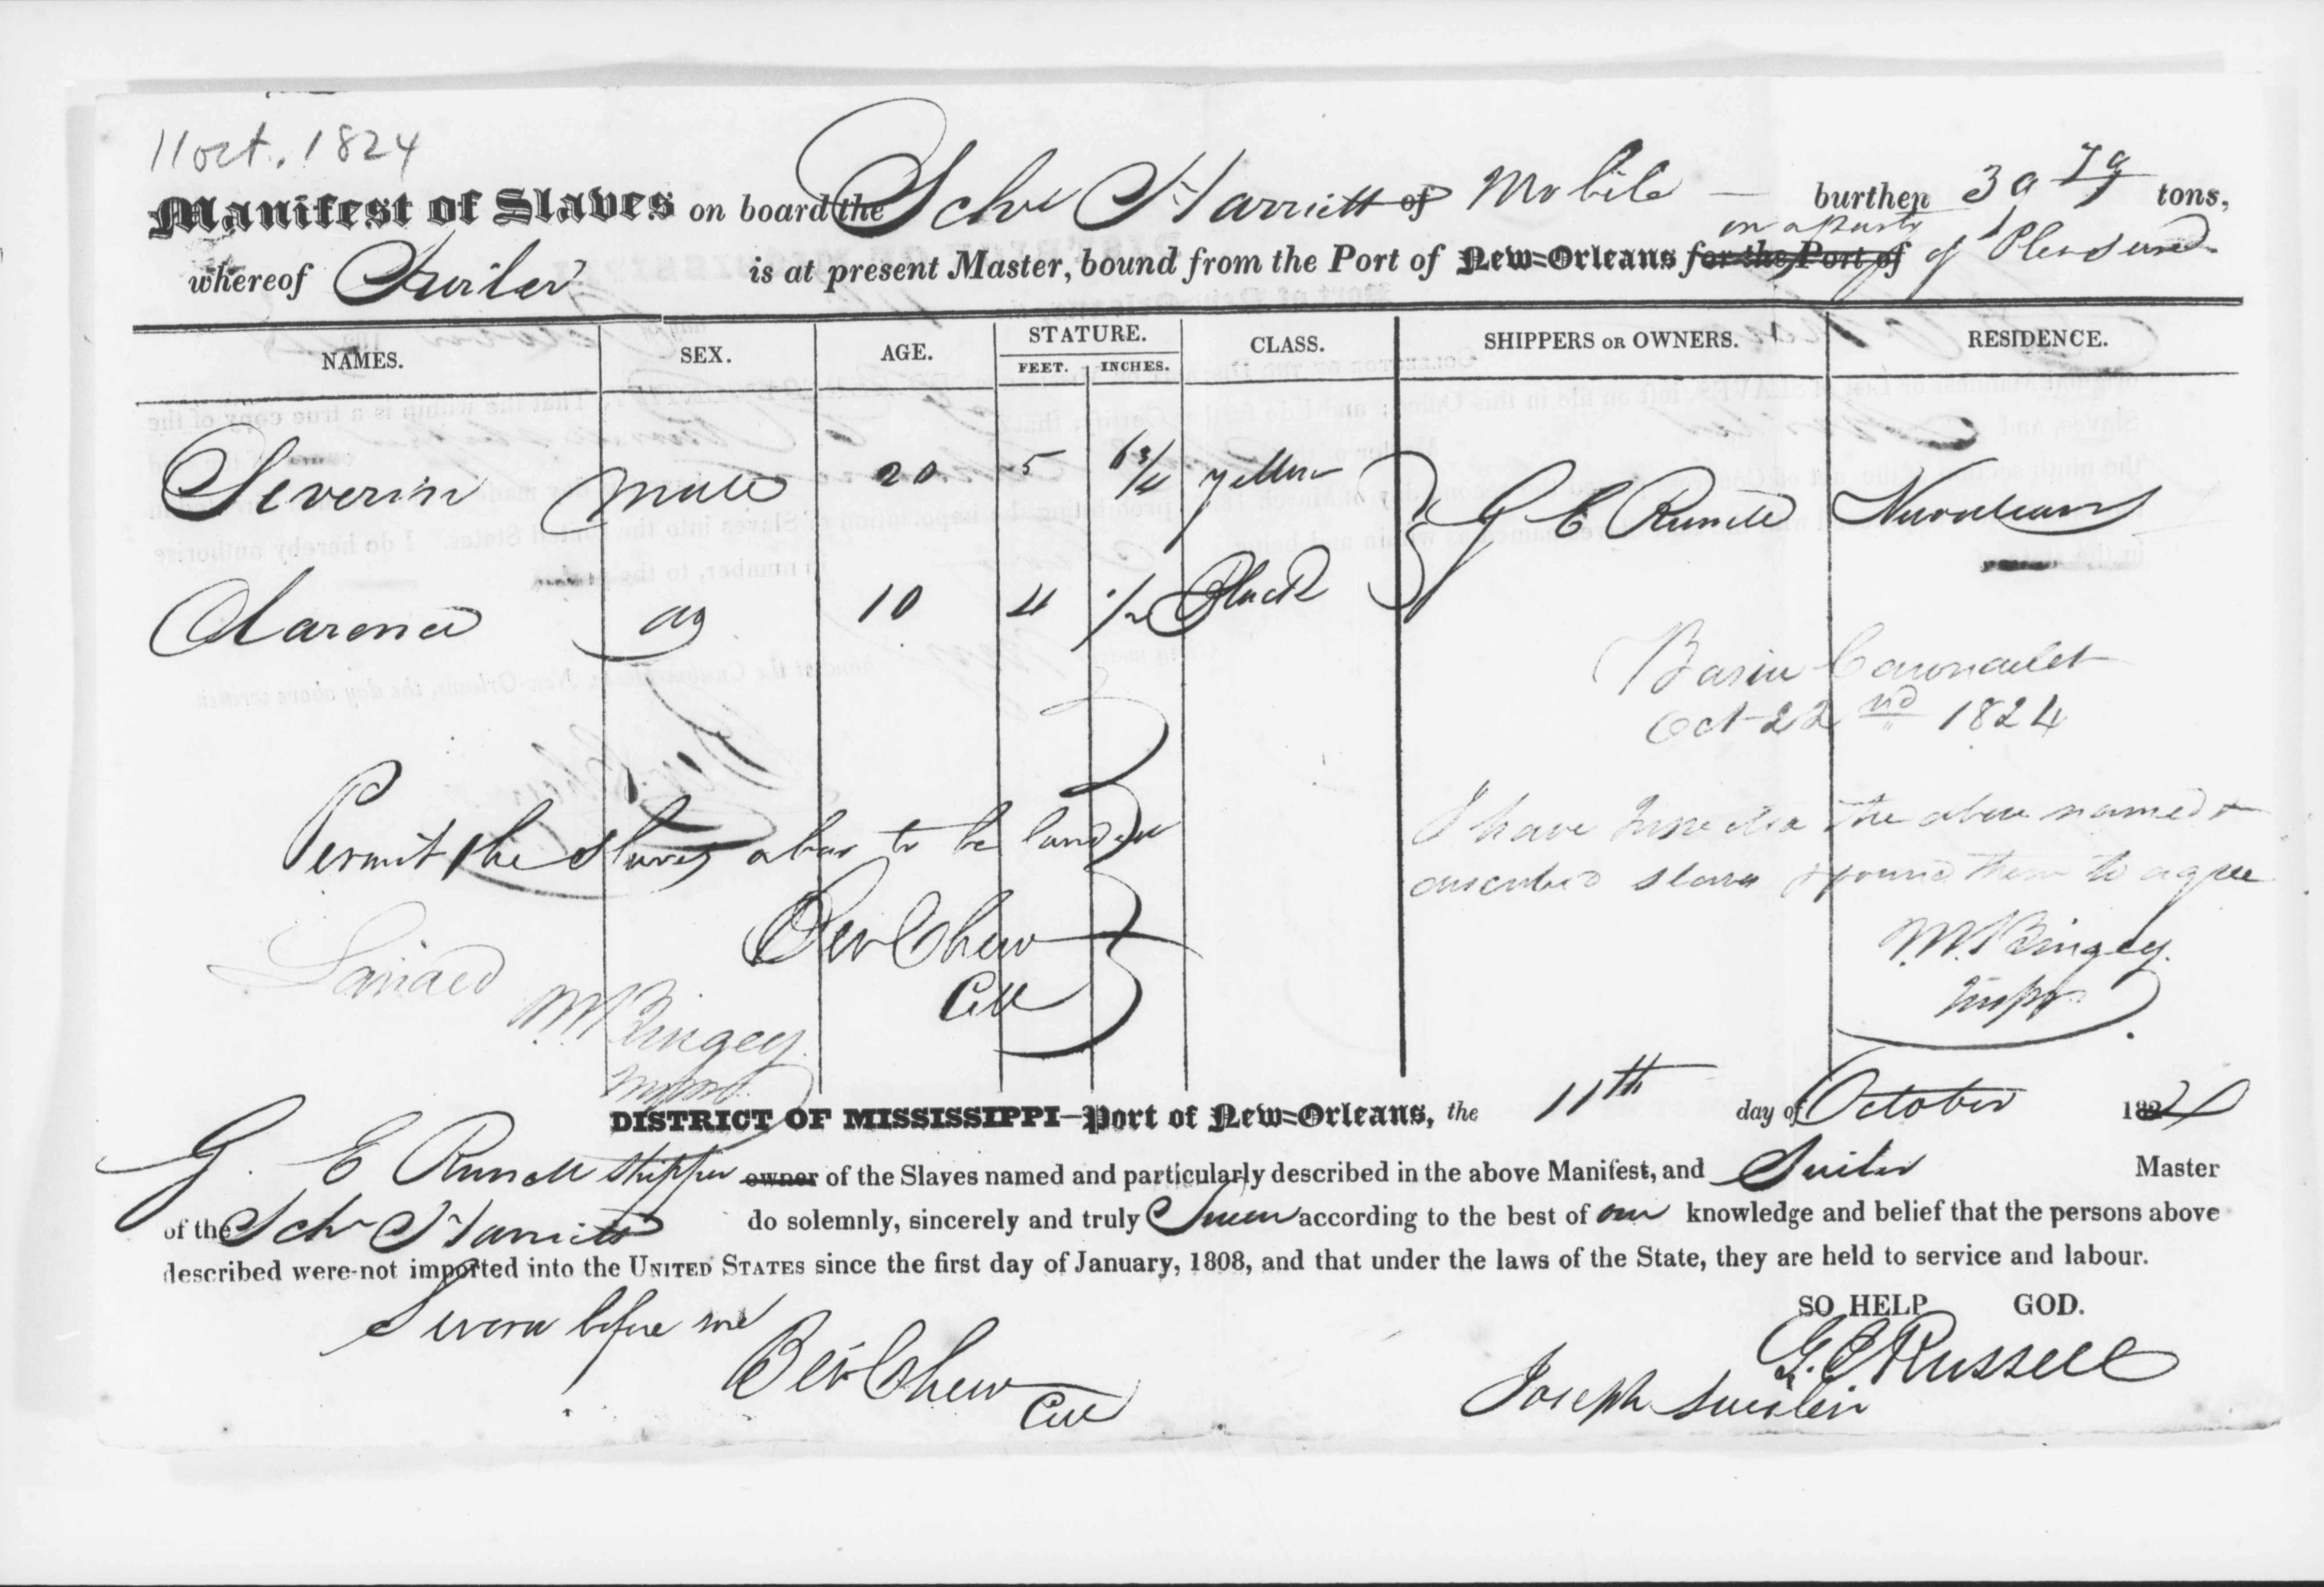 11 oct. 1824
Manifest of Slaves on board the Schr Harriett of Mobile — burthen 39 tons,
on a party
whereof is at present Master, bound from the Port of New=Orleans for the Port of of Pleasure
NAMES. SEX. AGE. STATURE. CLASS. SHIPPERS OR OWNERS. RESIDENCE.
FEET. INCHES.
Severin male 20 5 6 3/4 yellow G E Russell Neworleans
Clarence do 10 4 1/2 Black
Basin Carondelet
Oct 22nd 1824
Permit the slaves above to be landed
I have Inspected the above named &
described slaves & found them to agree
Bev Chew
Coll
W. Bingey.
Inspr
Landed
W. Bingey
Inspr.
DISTRICT OF MISSISSIPPI—Port of New=Orleans, the 11th day of October 1824
G. E Russell shipper owner of the Slaves named and particularly described in the above Manifest, and Master
of the Schr Harriett do solemnly, sincerely and truly Swear according to the best of our knowledge and belief that the persons above
described were-not imported into the UNITED STATES since the first day of January, 1808, and that under the laws of the State, they are held to service and labour.
SO HELP GOD.
Sworn before me
Bev Chew
Coll
G. E Russell
Joseph